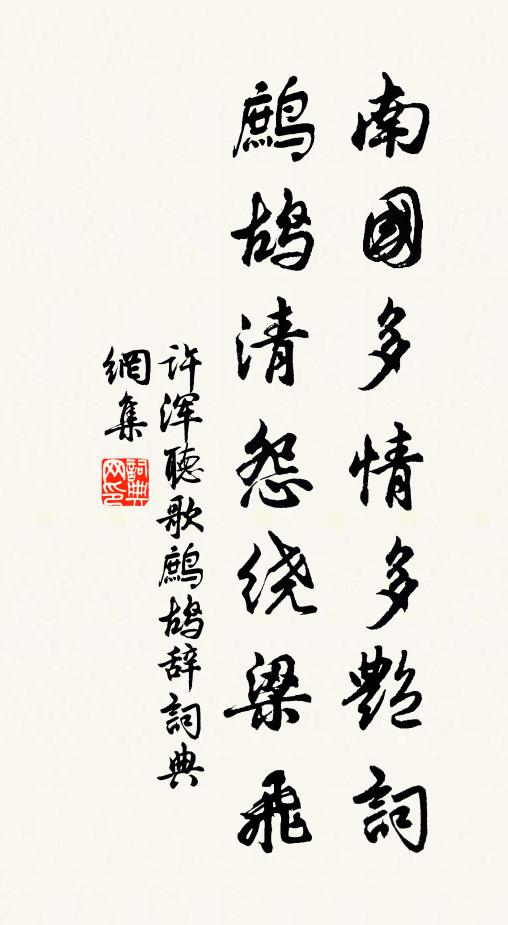 南國多情多艷詞
鷓鴣清怨绕梁飛
许浑聽歌鷓鴣辞詞典
網集
詞典网印